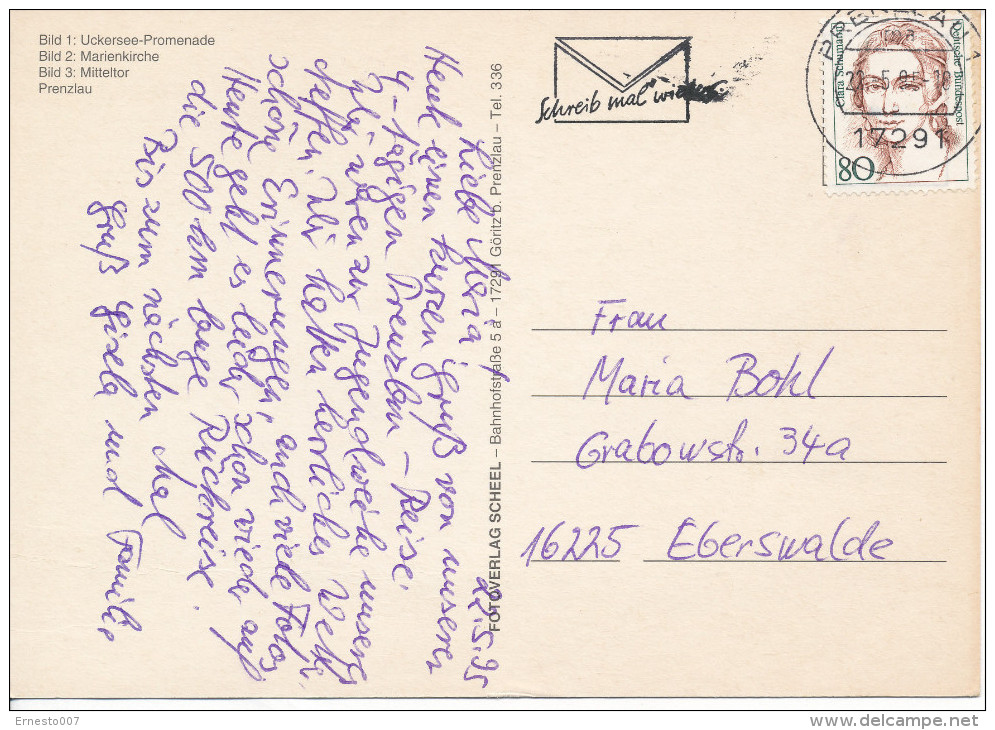 Bild 1: Uckersee-Promenade
Bild 2: Marienkirche
Bild 3: Mitteltor
Prenzlau
Schreib mal wieder
PRENZLAU 1
22.-5.95-18
17291
Clara Schumann
Deutsche Bundespost
80
22.5.95
Liebe Maria,
Heut einen kurzen Gruß von unserer
4-tägigen Prenzlau-Reise.
wir waren zur Jugendweihe unseres
Neffen. Wir hatten herrliches Wetter.
schöne Erinnerungen, auch viele Fotos
Heute geht es leider schon wieder auf
die 500 km lange Rückreise.
Bis zum nächsten Mal
Gruß Gisela und Familie
FOTOVERLAG SCHEEL – Bahnhofstraße 5 a – 17291 Göritz b. Prenzlau – Tel. 336
Frau
Maria Bohl
Grabowstr. 34a
16225 Eberswalde
Ernesto007
www.delcampe.net